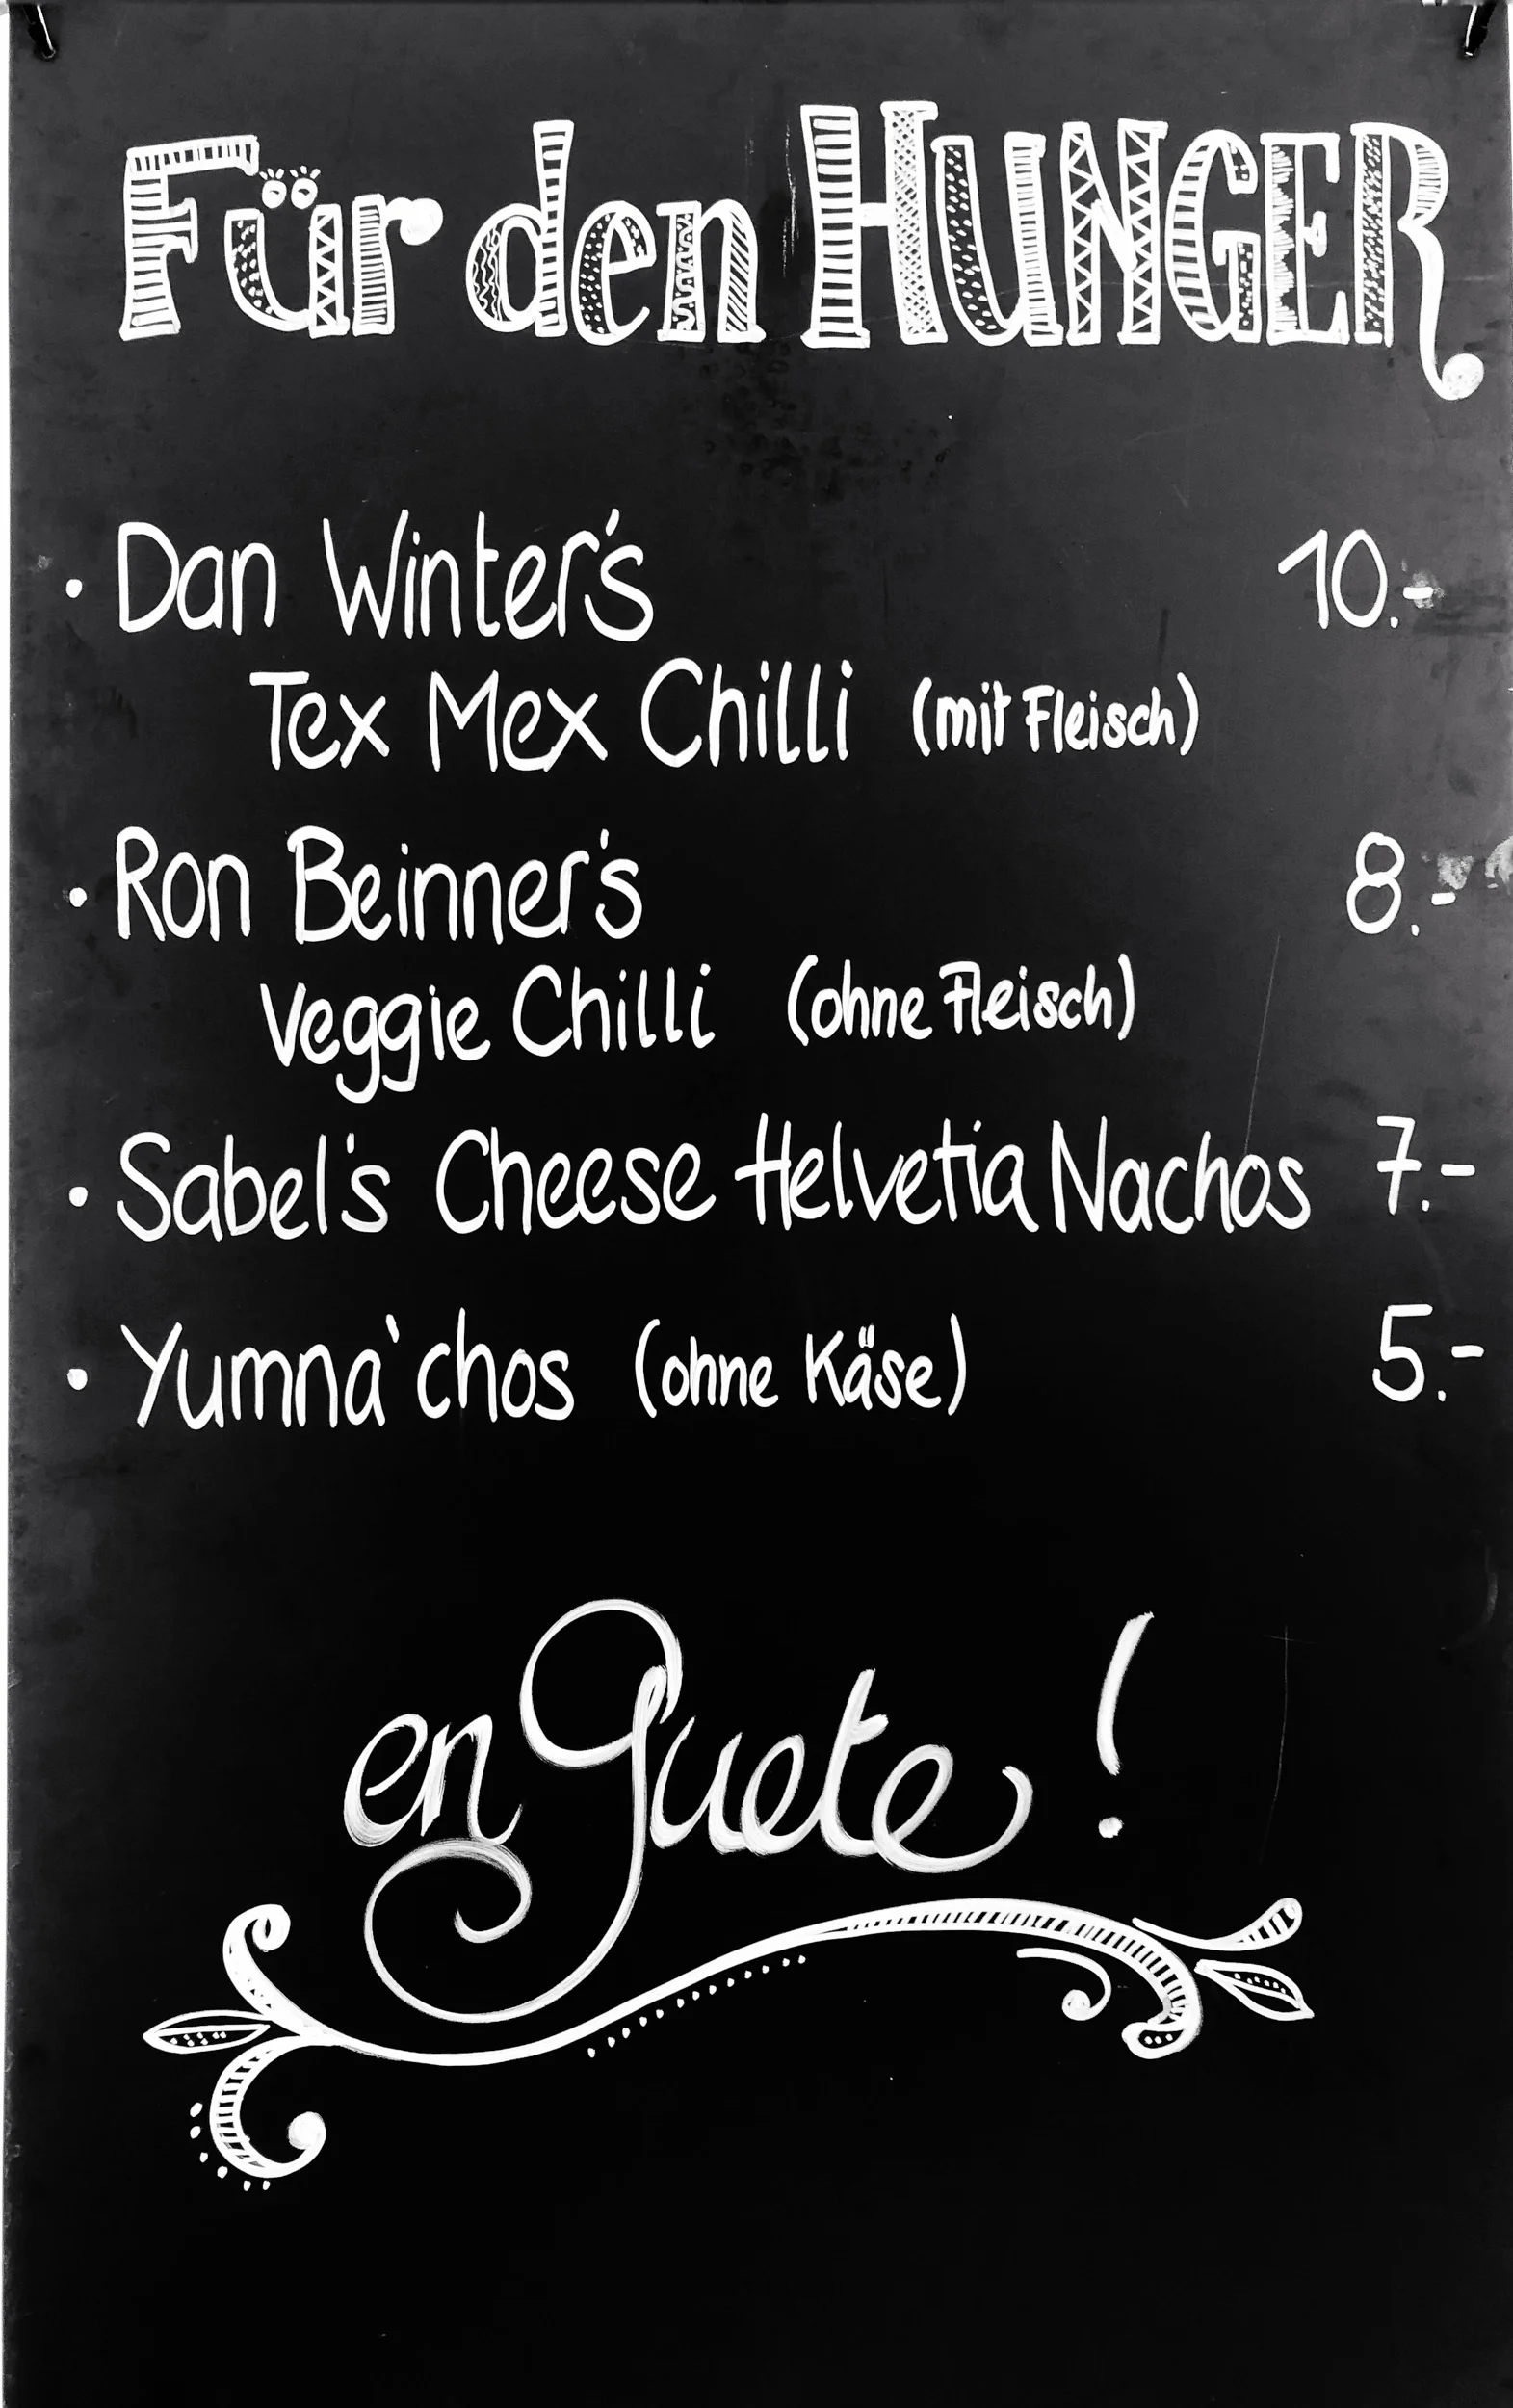 Für den HUNGER
• Dan Winter's 10.-
Tex Mex Chilli (mit Fleisch)
• Ron Beinner's 8.-
Veggie Chilli (ohne Fleisch)
• Sabel's Cheese Helvetia Nachos 7.-
• Yumna`chos (ohne Käse) 5.-
en Guete!